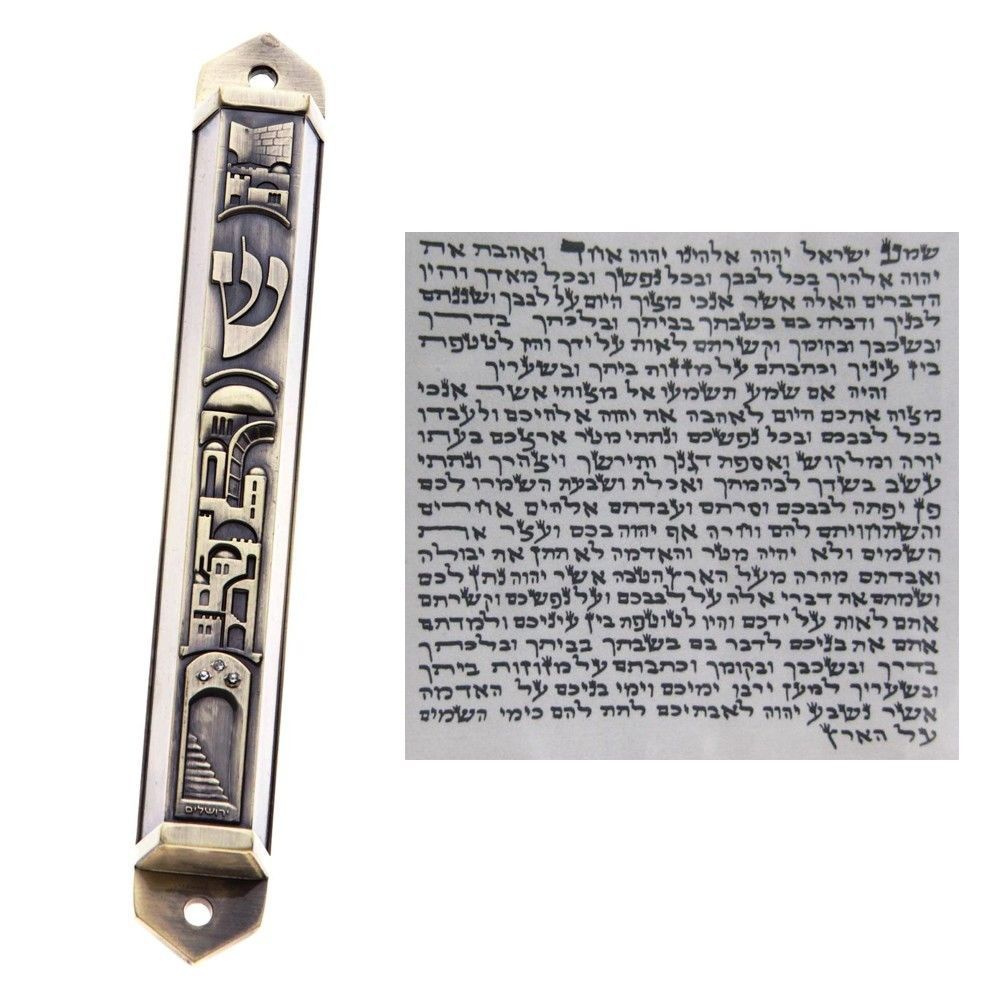 ש
ירושלים
שמע ישראל יהוה אלהינו יהוה אחד ואהבת את
יהוה אלהיך בכל לבבך ובכל נפשך ובכל מאדך והיו
הדברים האלה אשר אנכי מצוך היום על לבבך ושננתם
לבניך ודברת בם בשבתך בביתך ובלכתך בדרך
ובשכבך ובקומך וקשרתם לאות על ידך והיו לטטפת
בין עיניך וכתבתם על מזזות ביתך ובשעריך
והיה אם שמע תשמעו אל מצותי אשר אנכי
מצוה אתכם היום לאהבה את יהוה אלהיכם ולעבדו
בכל לבבכם ובכל נפשכם ונתתי מטר ארצכם בעתו
יורה ומלקוש ואספת דגנך ותירשך ויצהרך ונתתי
עשב בשדך לבהמתך ואכלת ושבעת השמרו לכם
פן יפתה לבבכם וסרתם ועבדתם אלהים אחרים
והשתחויתם להם וחרה אף יהוה בכם ועצר את
השמים ולא יהיה מטר והאדמה לא תתן את יבולה
ואבדתם מהרה מעל הארץ הטבה אשר יהוה נתן לכם
ושמתם את דברי אלה על לבבכם ועל נפשכם וקשרתם
אתם לאות על ידכם והיו לטוטפת בין עיניכם ולמדתם
אתם את בניכם לדבר בם בשבתך בביתך ובלכתך
בדרך ובשכבך ובקומך וכתבתם על מזוזות ביתך
ובשעריך למען ירבו ימיכם וימי בניכם על האדמה
אשר נשבע יהוה לאבתיכם לתת להם כימי השמים
על הארץ